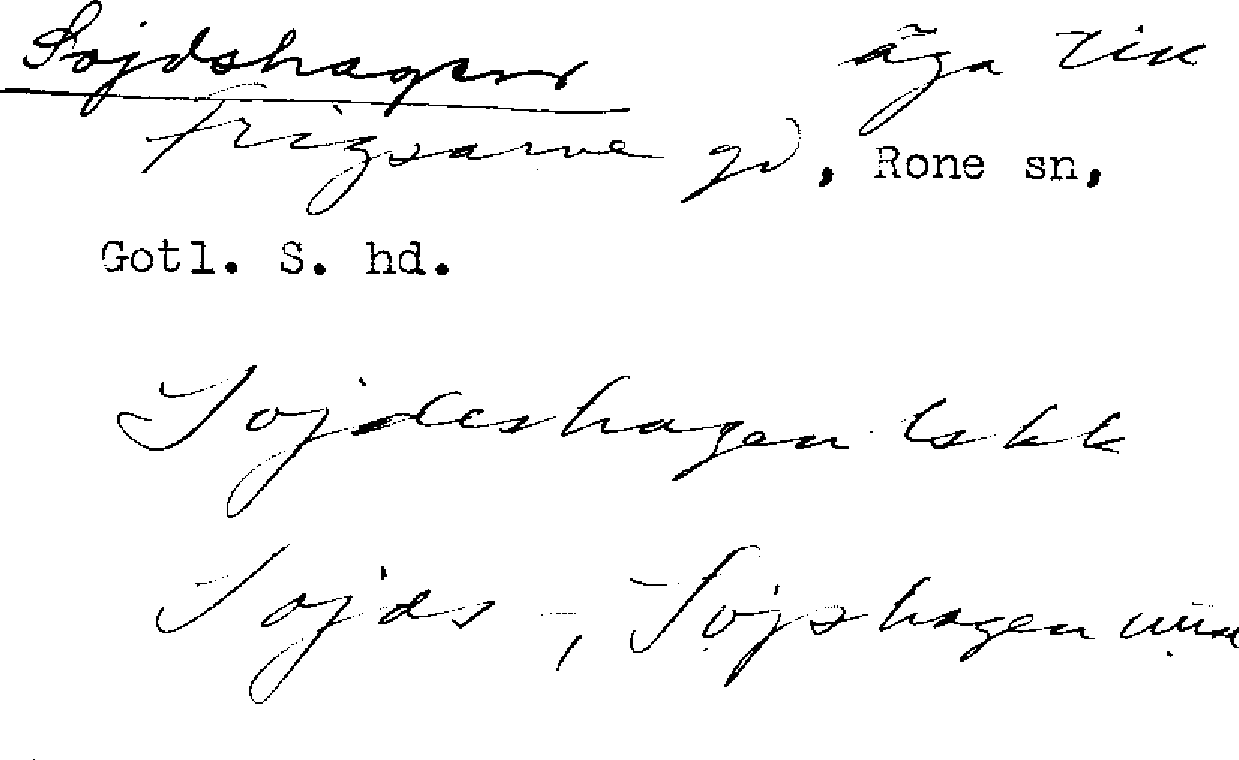 Sojdshagen äga till
Frigsarve gd, Rone sn,
Gotl. S. hd.
Sojdeshagen lskk
Sojds-, Sojshagen